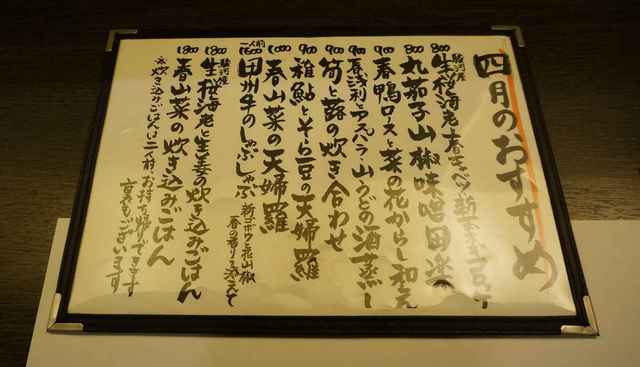 四月のおすすめ
800 駿河産 生桜海老と春キャベツ
800 丸茄子山椒味噌田楽
900 春鴨ロースと菜の花からし和え
900 アスパラ・山うどの酒蒸し
900 筍と蕗の炊き合わせ
900 稚鮎とそら豆の天婦羅
1000 春山菜の天婦羅
一人前 1600 牛のしゃぶしゃぶ 新ゴボウと花山椒 春の香りを添えて
1800 駿河産 生桜海老と生姜の炊き込みごはん
1800 春山菜の炊き込みごはん
炊き込みごはんは二人前、お持ち帰りできます